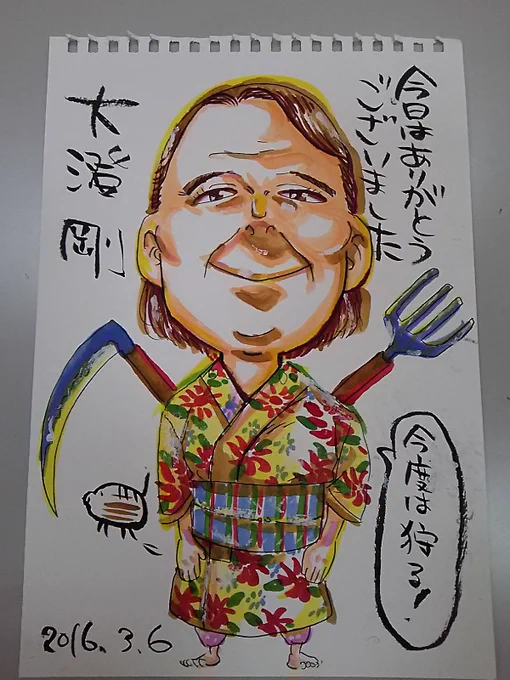 今日はありがとう
ございました
大澄剛
今度は狩る!
2016.3.6